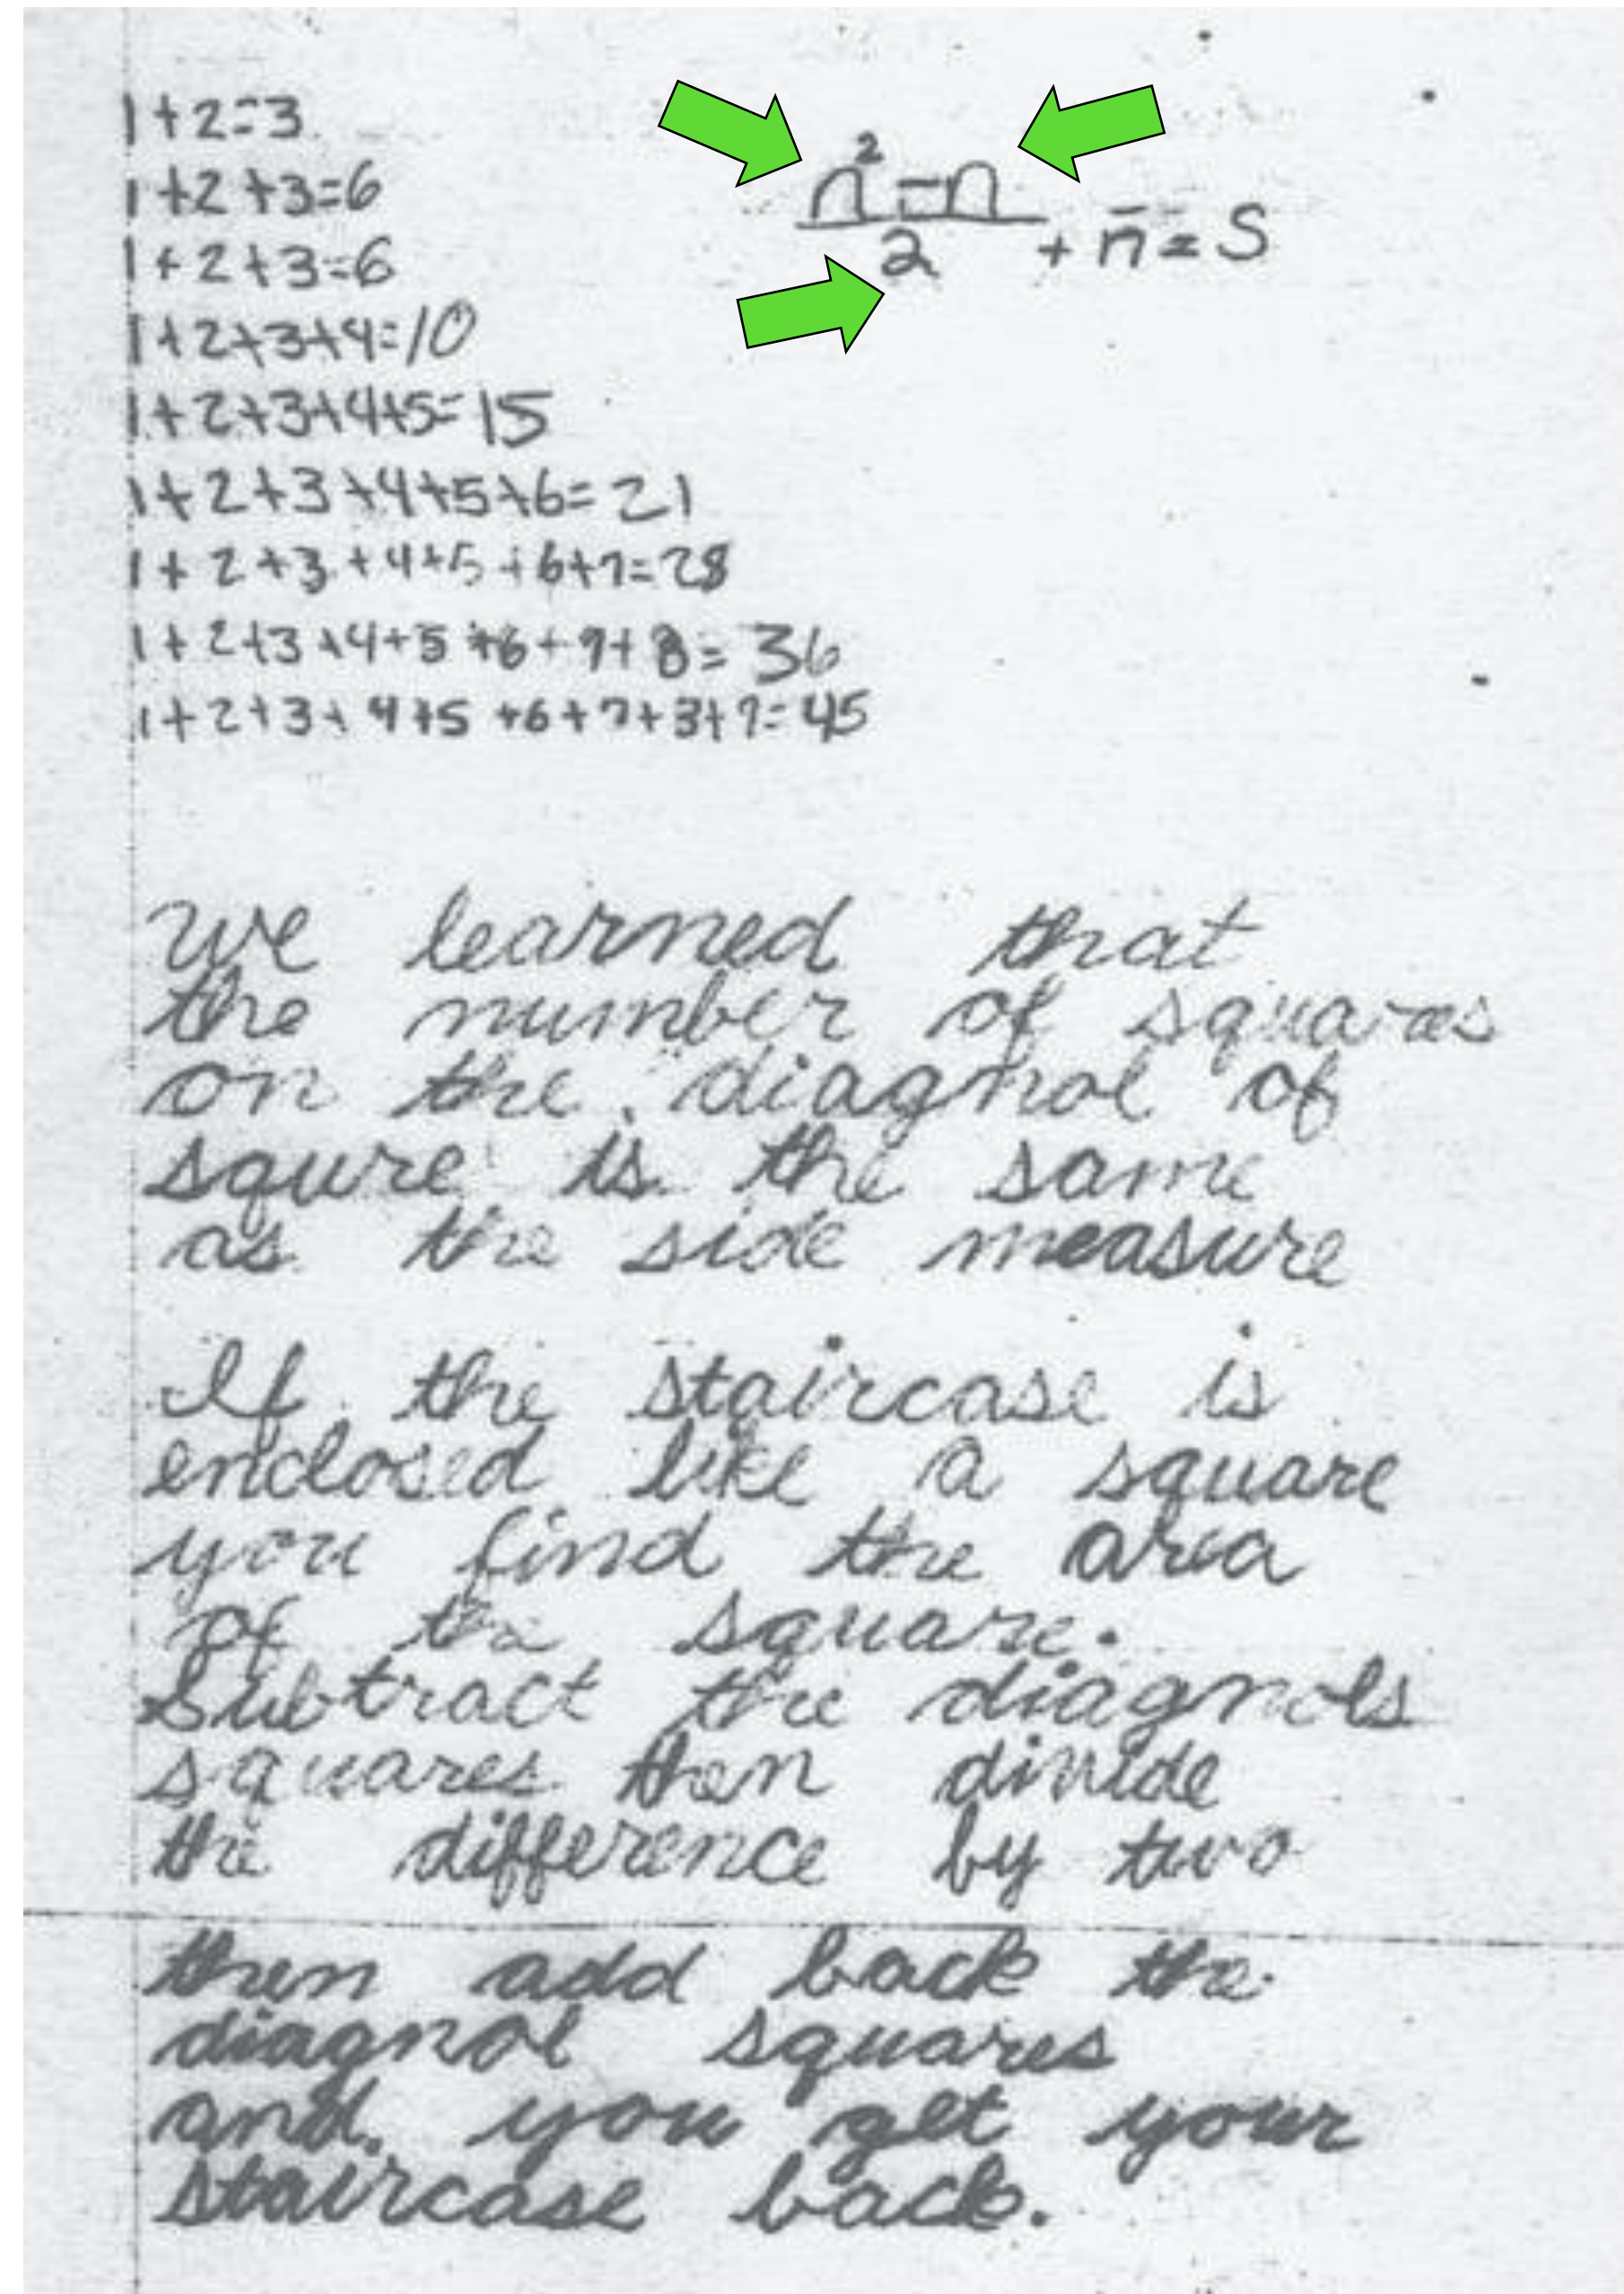 1+2=3
1+2+3=6
1+2+3=6
1+2+3+4=10
1+2+3+4+5=15
1+2+3+4+5+6=21
1+2+3+4+5+6+7=28
1+2+3+4+5+6+7+8=36
1+2+3+4+5+6+7+8+9=45
n²-n
2 + n = S
We learned that
the number of squares
on the diagnol of
squre is the same
as the side measure
If the staircase is
enclosed like a square
you find the area
of the square.
Subtract the diagnols
squares then divide
the difference by two
then add back the
diagnol squares
and you get your
staircase back.